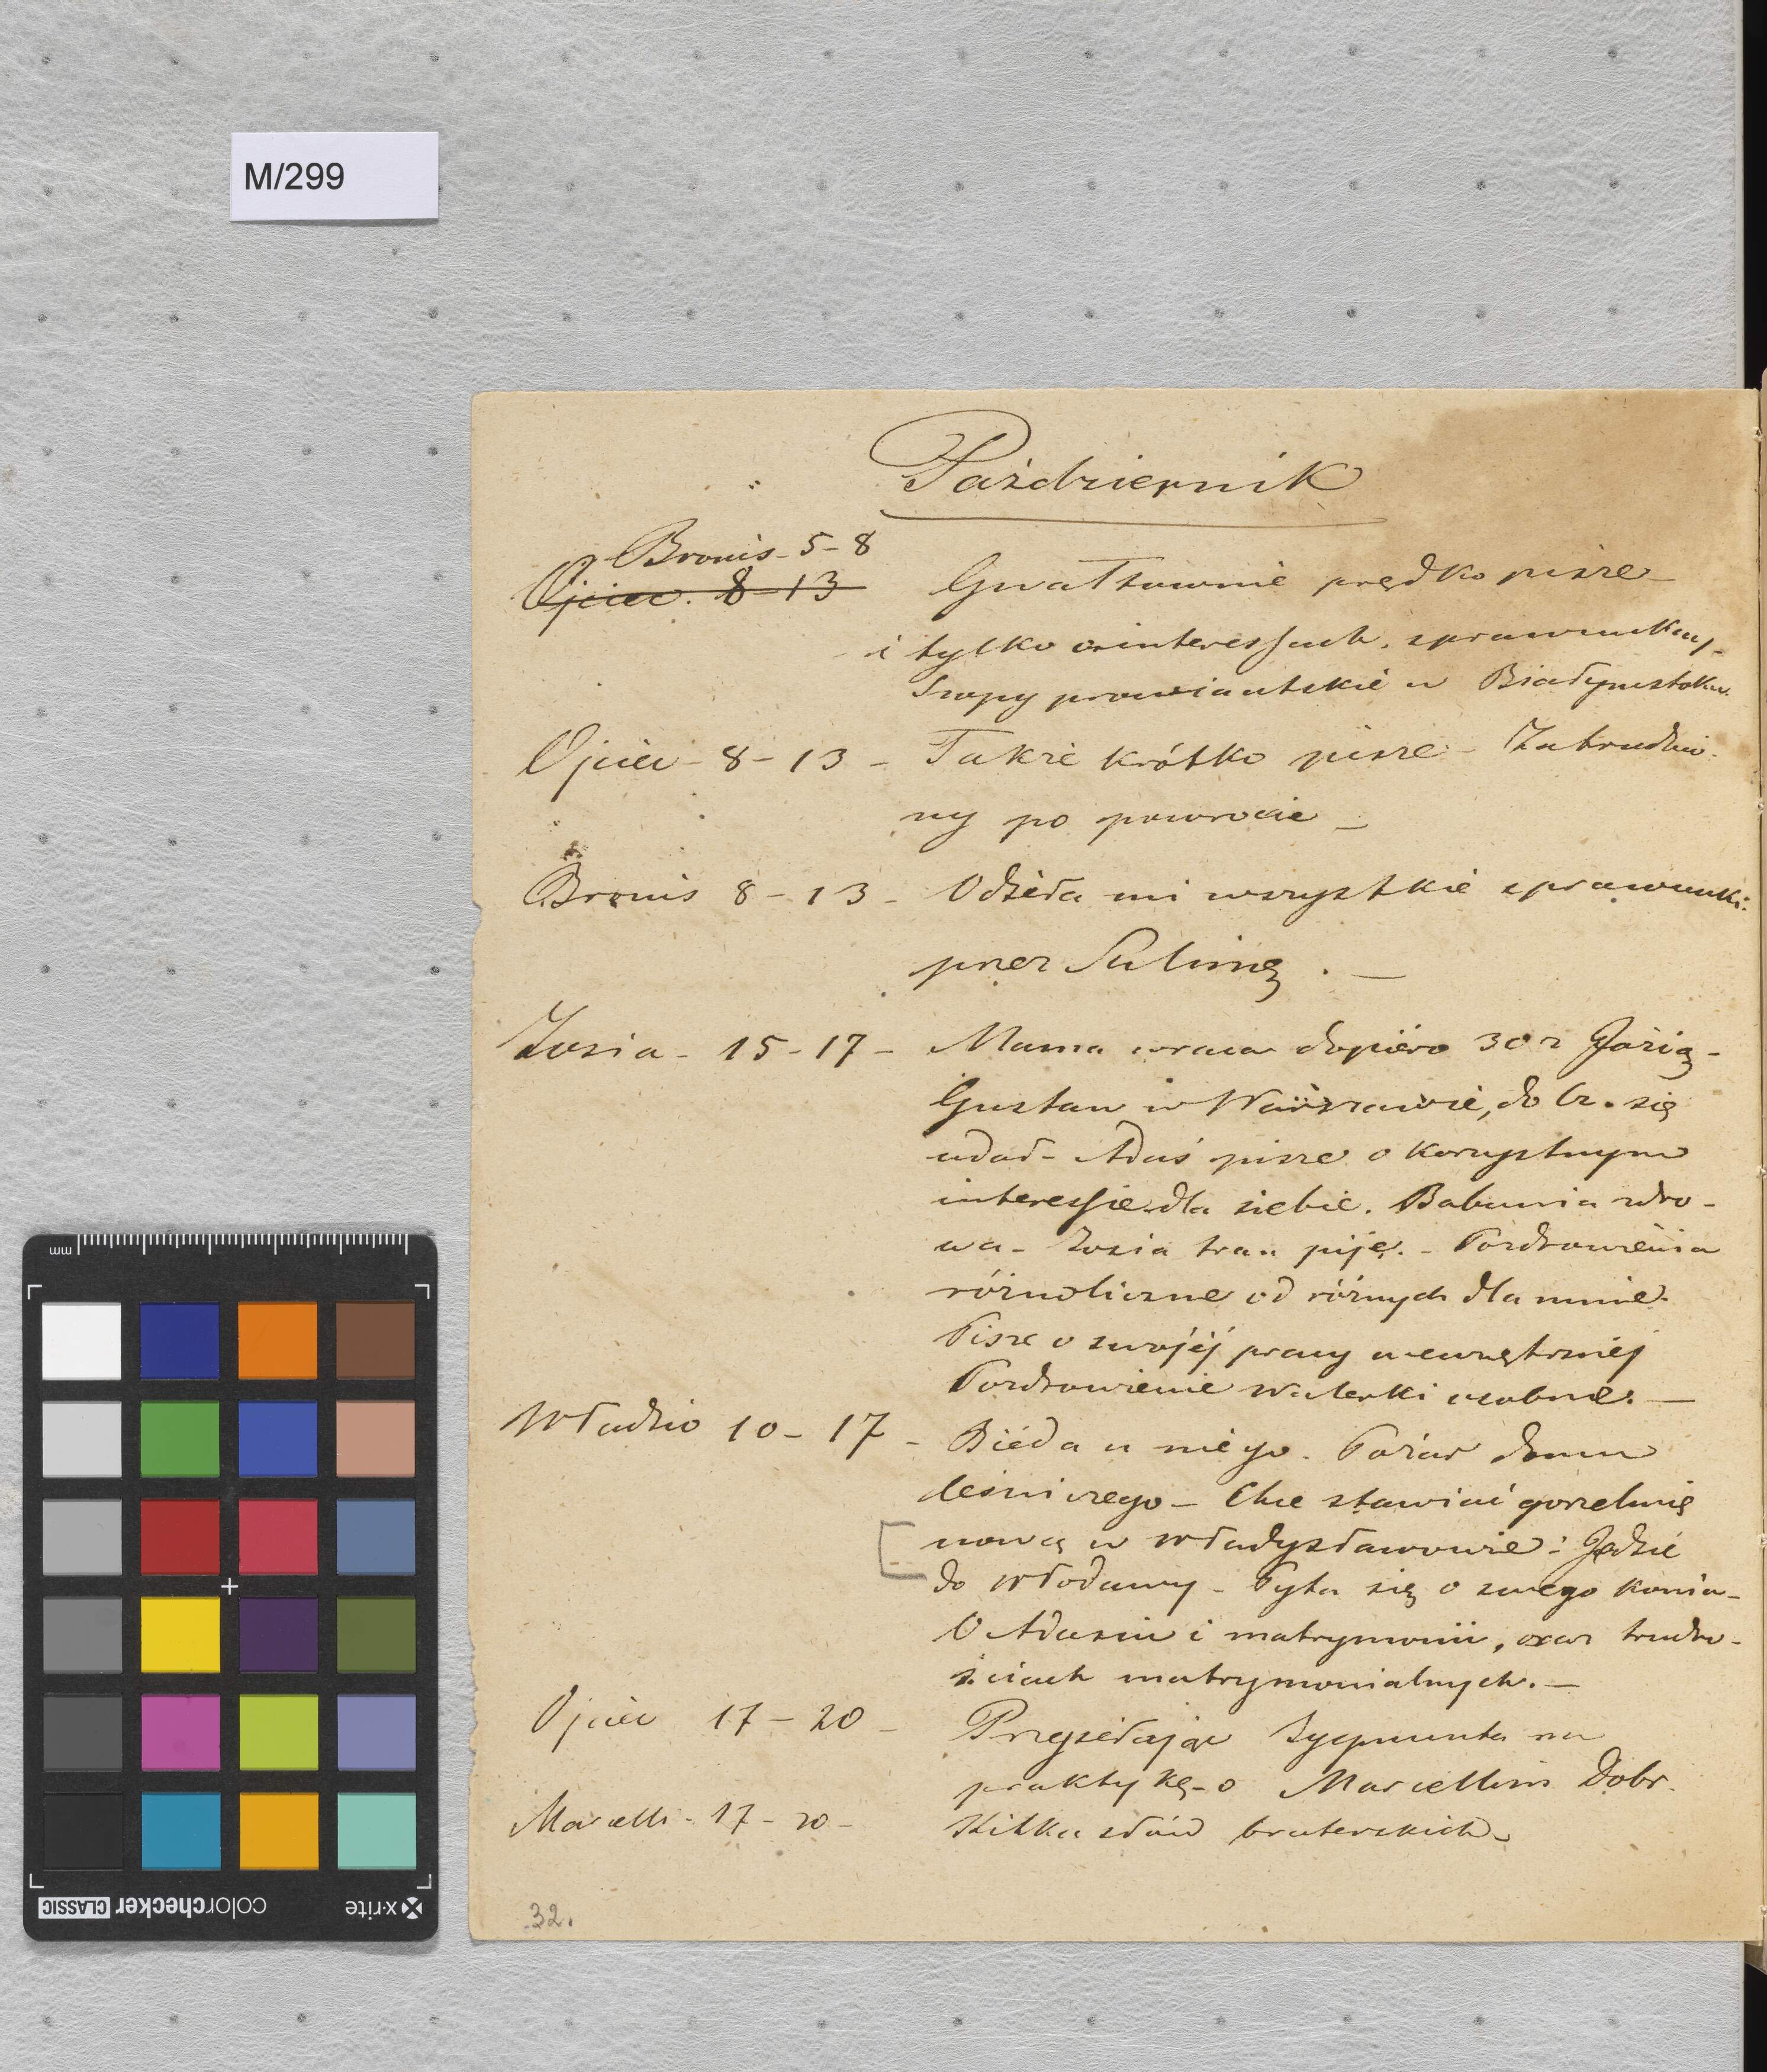 M/299
Październik
Bronis - 5 - 8
Ojciec. 8 - 13
Gwałtownie prędko pisze -
i tylko o interessach, sprawunkay -
Szopy prowiantskie w Białymstoku.
Ojciec - 8 - 13 - Także krótko pisze - Zatrudnio-
ny po powrocie -
Bronis 8 - 13 - Odsiéła mi wszystkie sprawunki:
przez Sulimę . -
Zosia - 15 - 17 - Mama wraca dopiéro 30 z Józią -
Gustaw w Warszawie, do Cz. się
udał - Adaś pisze o korzystnym
interessie dla siebie. Babunia zdro-
wa - Zosia tran pije. - Pozdrowienia
różnoliczne od różnych dla mnie.
Pisze o swojéj pracy wewnętrznéj
Pozdrowienie Walerki osobne. -
Władzio 10 - 17 - Biéda u niego. Pożar domu
leśniczego - Chce stawiać gorzelnię
nową w Władysławowie: Jedzie
do Włodawy - Pyta się o swego konia -
O Adasiu i matrymonii, oraz trudno-
ściach matrymonialnych. -
Ojciec 17 - 20 - Przysełając Zygmunta na
praktykę - o Marcellim Dobr.
Marcelli - 17 - 20 - Kilka słów braterskich -
32.
mm
x-rite
colorchecker CLASSIC